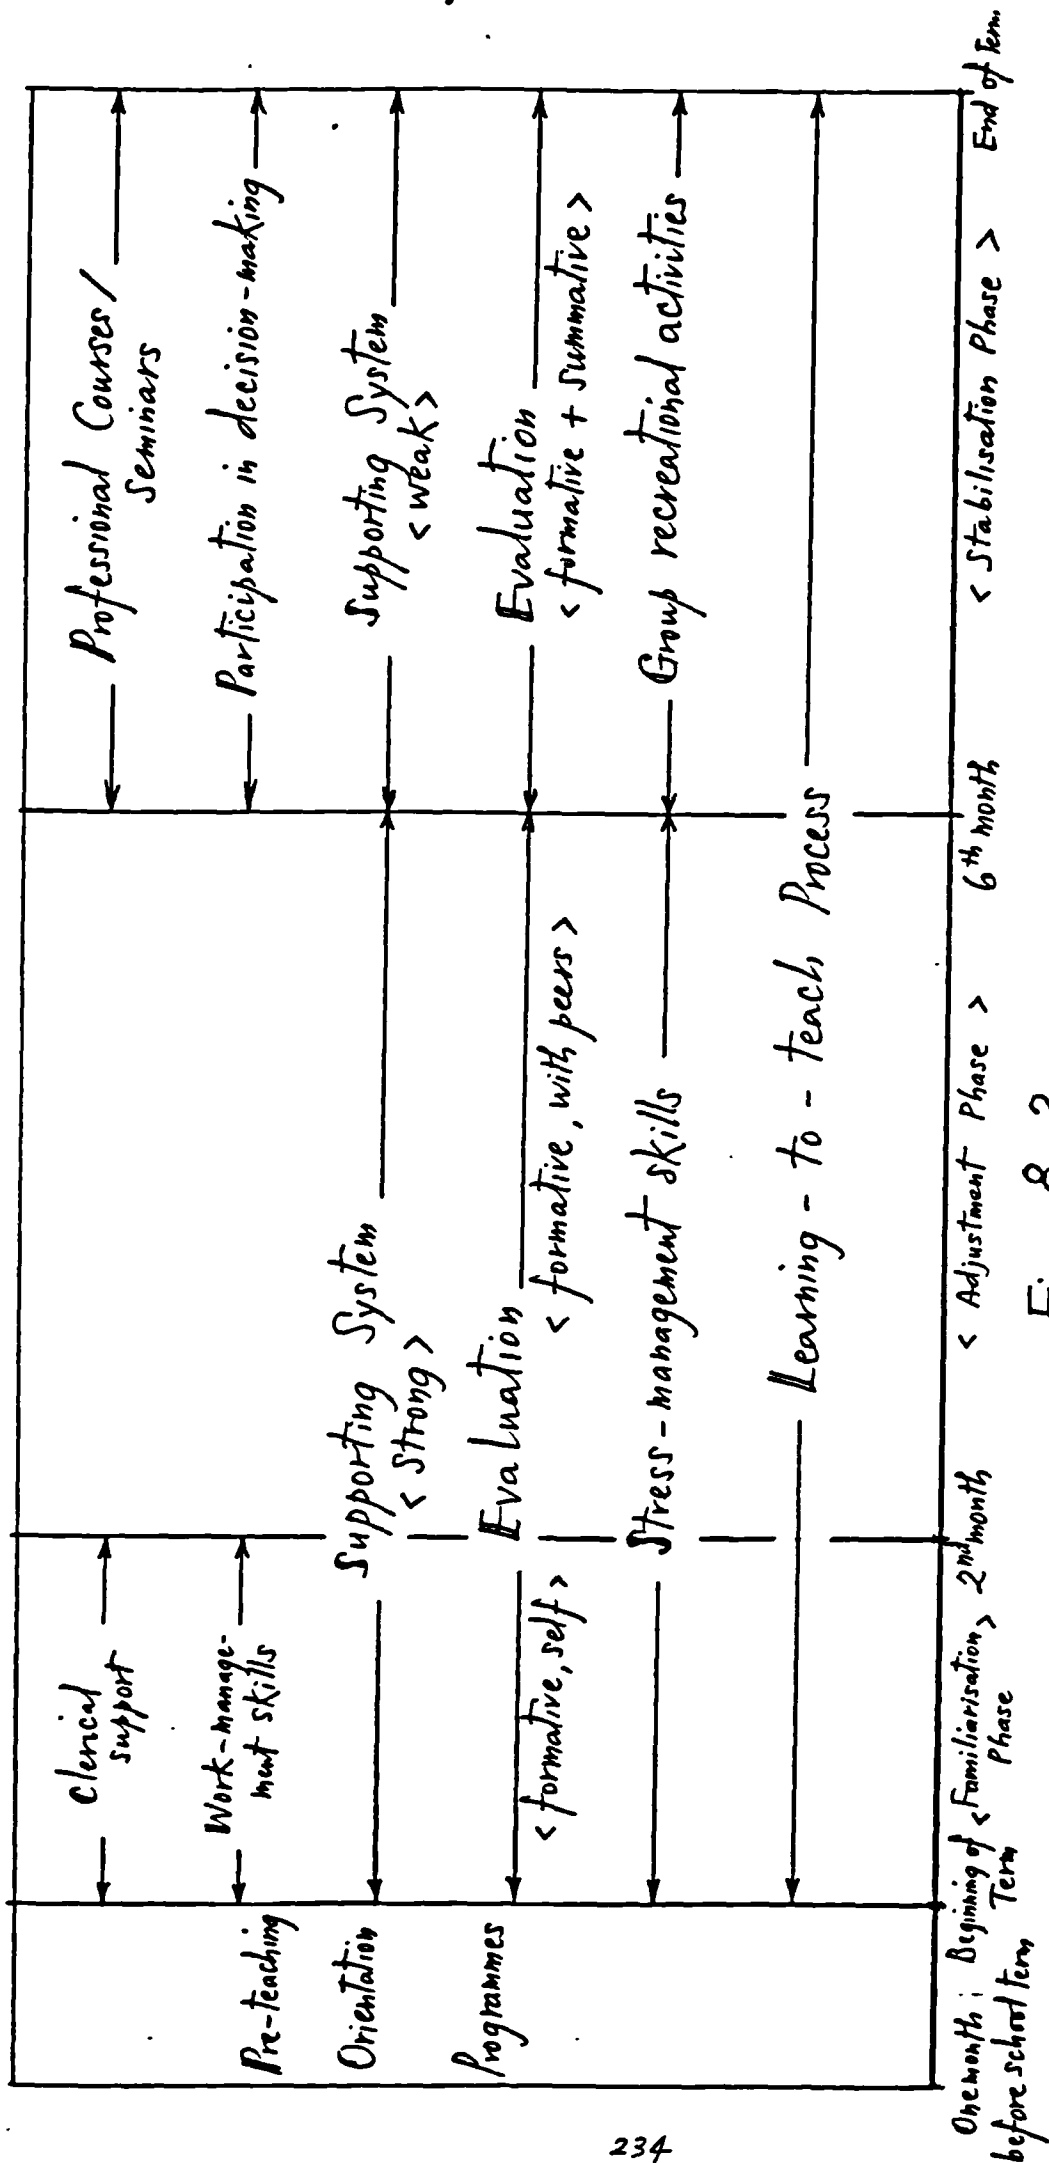 Pre-teaching
Orientation
Programmes
Clerical
support
Work-manage-
ment skills
Supporting System
< Strong >
Evaluation
< formative, self >
< formative, with peers >
Stress-management skills
Learning - to - teach Process
Professional Courses /
Seminars
Participation in decision-making
Supporting System
< weak >
Evaluation
< formative + summative >
Group recreational activities
One month
before school term
Beginning of
Term
< Familiarisation >
Phase
2nd month
< Adjustment Phase >
6th month
< Stabilisation Phase >
End of Term
234